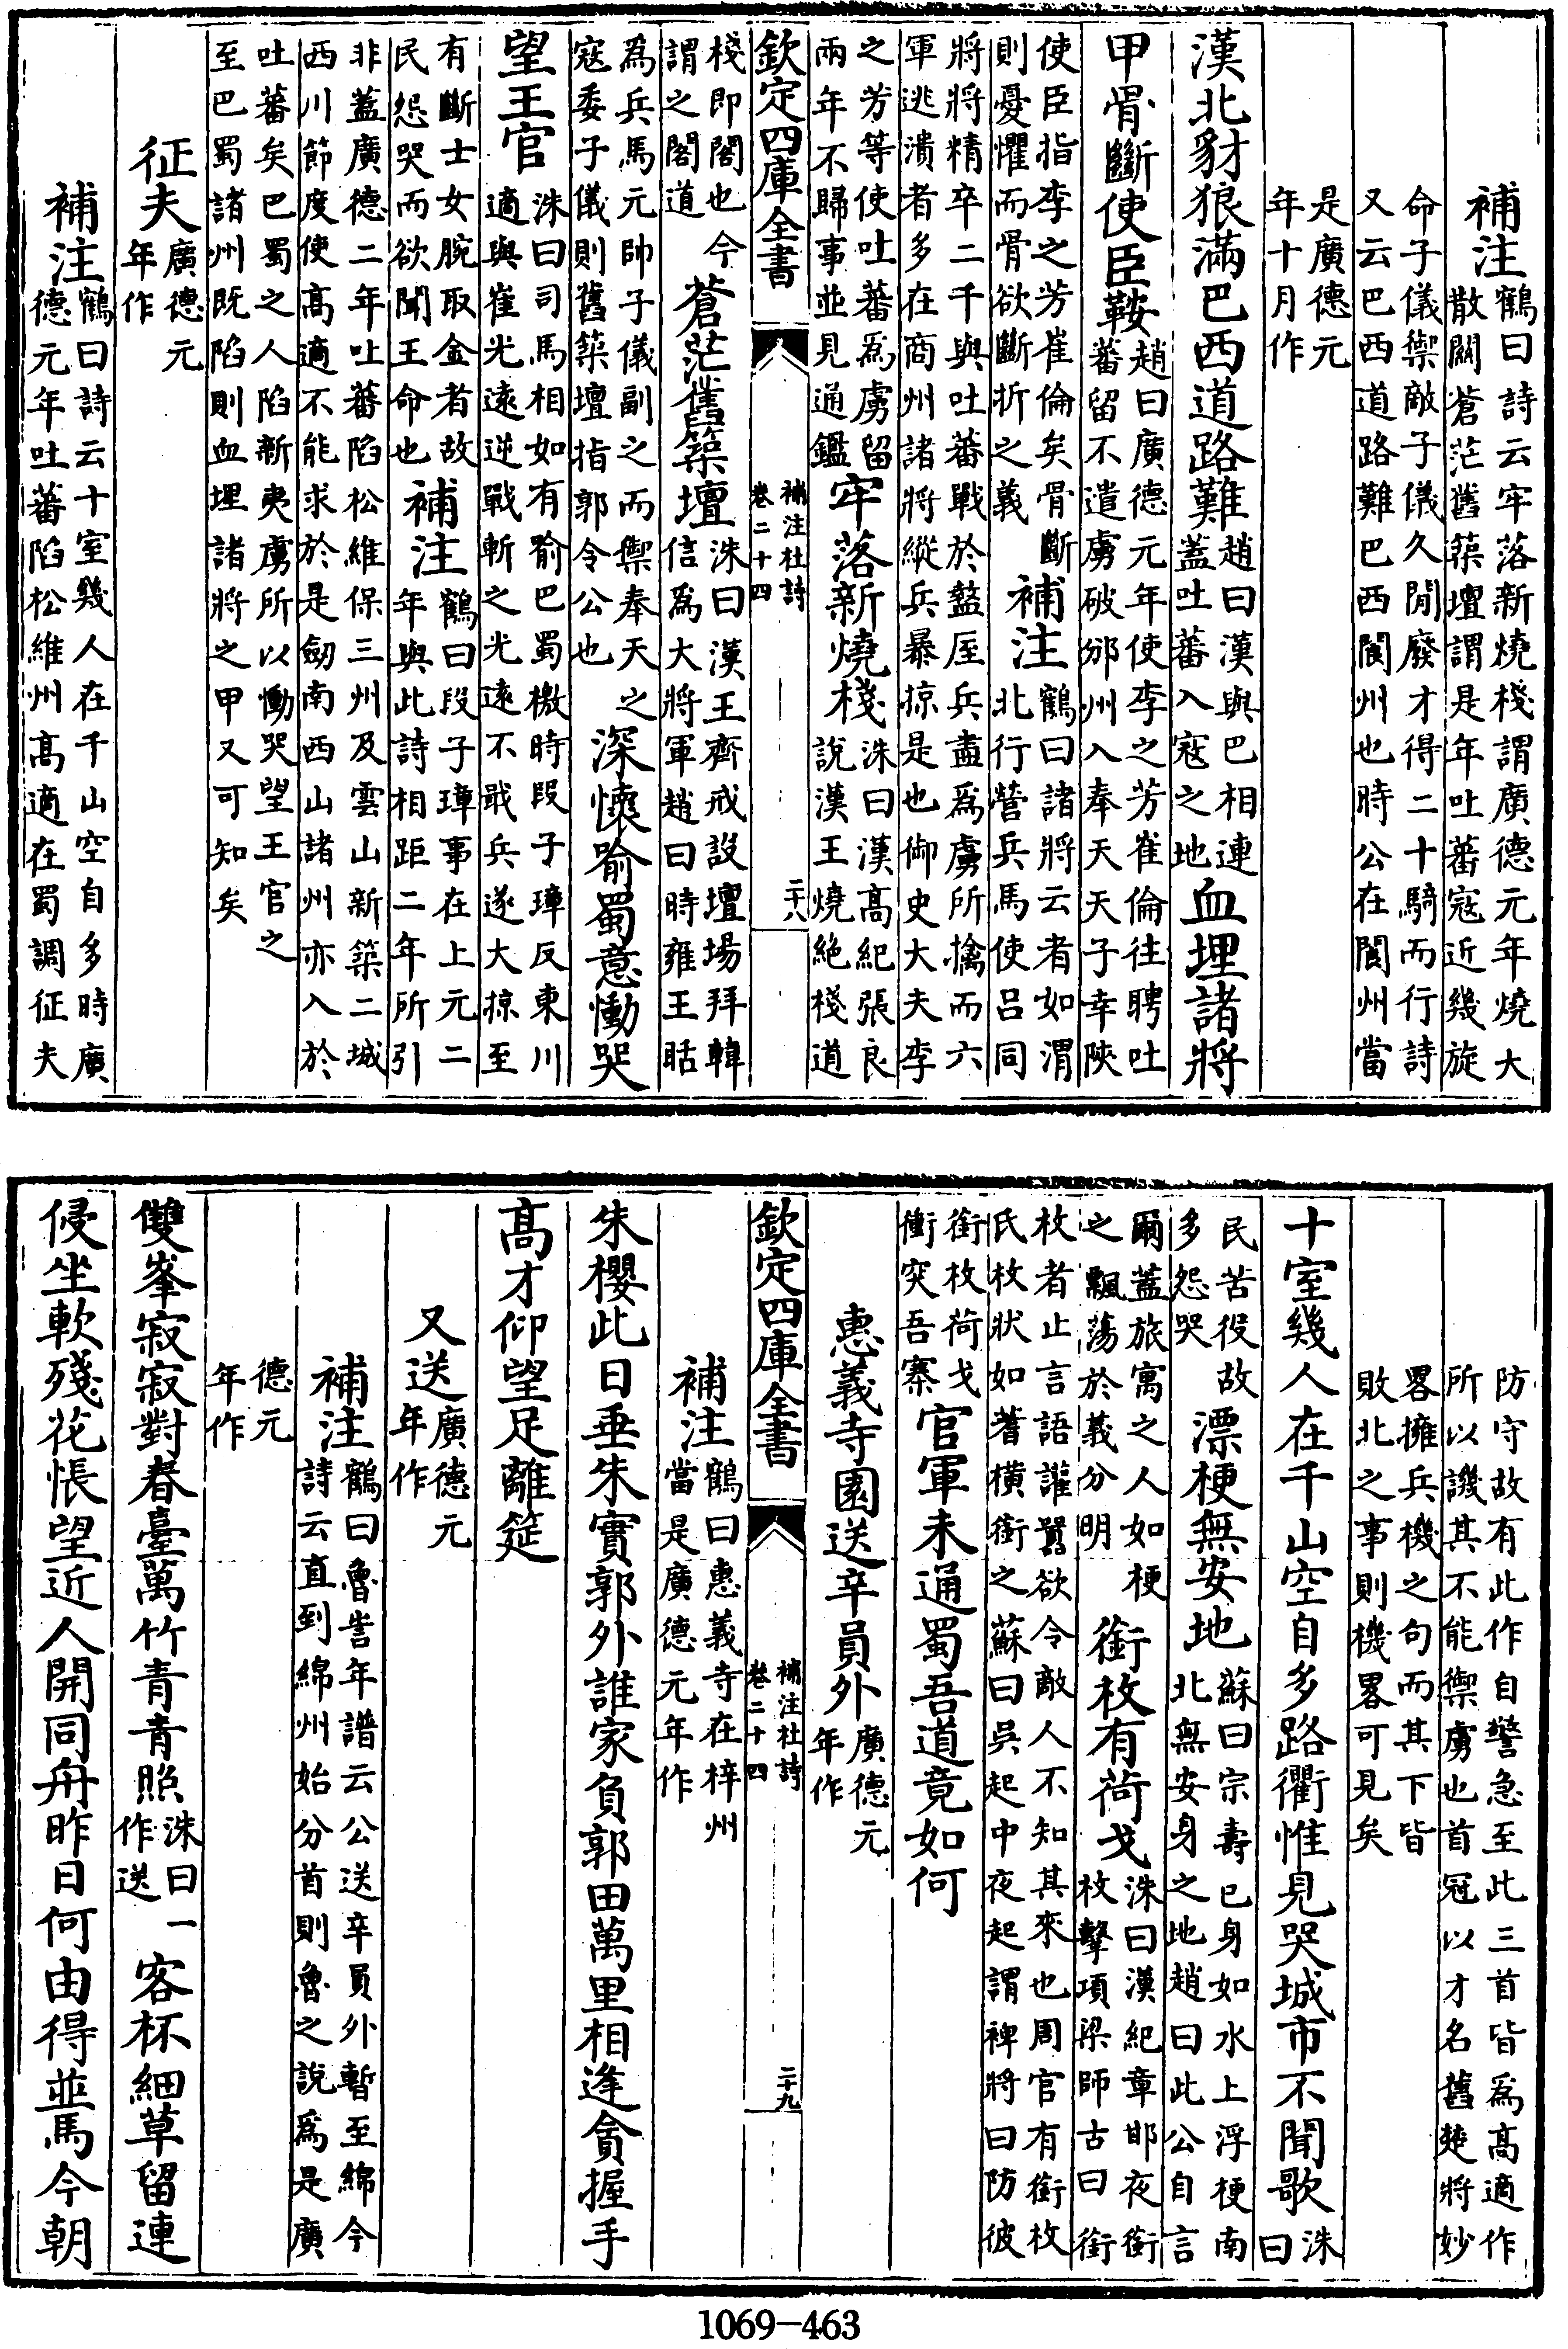 補注鶴曰詩云牢落新燒棧謂廣德元年燒大
散關蒼茫舊築壇謂是年吐蕃寇近畿旋
命子儀禦敵子儀久閒廢才得二十騎而行詩
又云巴西道路難巴西閬州也時公在閬州當
是廣德元
年十月作
漢北豺狼滿巴西道路難趙曰漢與巴相連蓋吐蕃入寇之地血埋諸將
甲骨斷使臣鞍趙曰廣德元年使李之芳崔倫往聘吐
蕃留不遣虜破邠州入奉天天子幸陝
使臣指李之芳崔倫矣骨斷
則憂懼而骨欲斷折之義補注鶴曰諸將云者如渭
北行營兵馬使呂同
將將精卒二千與吐蕃戰於盩厔兵盡為虜所擒而六
軍逃潰者多在商州諸將縱兵暴掠是也御史大夫李
之芳等使吐蕃為虜留
兩年不歸事並見通鑑牢落新燒棧洙曰漢高紀張良
說漢王燒絕棧道
欽定四庫全書 補注杜詩 卷二十四 二十八
棧即閣也今
謂之閣道蒼茫舊築壇洙曰漢王齊戒設壇場拜韓
信為大將軍趙曰時雍王
為兵馬元帥子儀副之而禦奉天之
寇委子儀則舊築壇指郭令公也深懷喻蜀意慟哭
望王官洙曰司馬相如有喻巴蜀檄時段子璋反東川
適與崔光遠逆戰斬之光遠不戢兵遂大掠至
有斷士女腕取金者故
民怨哭而欲聞王命也補注鶴曰段子璋事在上元二
年與此詩相距二年所引
非蓋廣德二年吐蕃陷松維保三州及雲山新築二城
西川節度使高適不能求於是劒南西山諸州亦入於
吐蕃矣巴蜀之人陷新夷虜所以慟哭望王官之
至巴蜀諸州既陷則血埋諸將之甲又可知矣
征夫廣德元年作
補注鶴曰詩云十室幾人在千山空自多時廣
德元年吐蕃陷松維州高適在蜀調征夫
防守故有此作自警急至此三首皆為高適作
所以譏其不能禦虜也首冠以才名舊楚將妙
畧擁兵機之句而其下皆
敗北之事則機畧可見矣
十室幾人在千山空自多路衢惟見哭城市不聞歌洙曰
民苦役故
多怨哭漂梗無安地蘇曰宗壽已身如水上浮梗南
北無安身之地趙曰此公自言
爾蓋旅寓之人如梗
之飄蕩於義分明銜枚有荷戈洙曰漢紀章邯夜銜
枚擊項梁師古曰銜
枚者止言語讙囂欲令敵人不知其來也周官有銜枚
氏枚狀如蓍橫銜之蘇曰吳起中夜起謂裨將曰防彼
銜枚荷戈
衝突吾寨官軍未通蜀吾道竟如何
惠義寺園送辛員外廣德元年作
欽定四庫全書 補注杜詩 卷二十四 二十九
補注鶴曰惠義寺在梓州
當是廣德元年作
朱櫻此日垂朱實郭外誰家負郭田萬里相逢貪握手
高才仰望足離筵
又送廣德元年作
補注鶴曰魯訔年譜云公送辛員外暫至綿今
詩云直到綿州始分首則魯之說為是廣
德元
年作
雙峯寂寂對春臺萬竹青青照洙曰一作送客杯細草留連
侵坐軟殘花悵望近人開同舟昨日何由得並馬今朝
1069-463